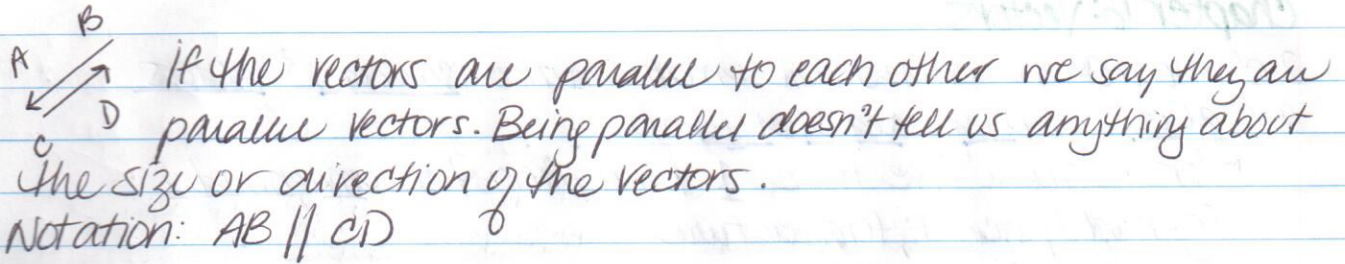 B
A
if the vectors are parallel to each other we say they are
D
parallel vectors. Being parallel doesn't tell us anything about
C
the size or direction of the vectors.
Notation: AB // CD